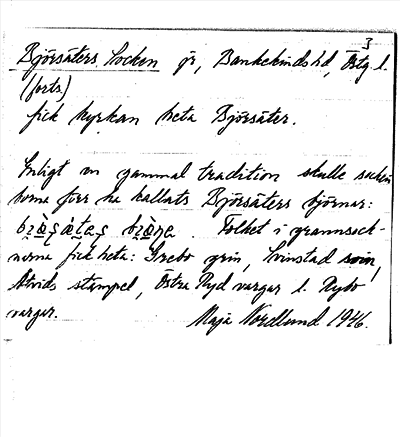 3
Björsäters Socken ö, Bankekinds hd, Östg l.
(forts)
fick kyrkan heta Björsäter.
Enligt en gammal tradition skulle socken
borna förr ha kallats Björsäters björnar:
Folket i grannsock-
narna fick heta: Grebo grin, Svinstad svin,
Åtvids stämpel, Östra Ryd vargar l. Rybo
vargar.
Maja Nordlund 1946.